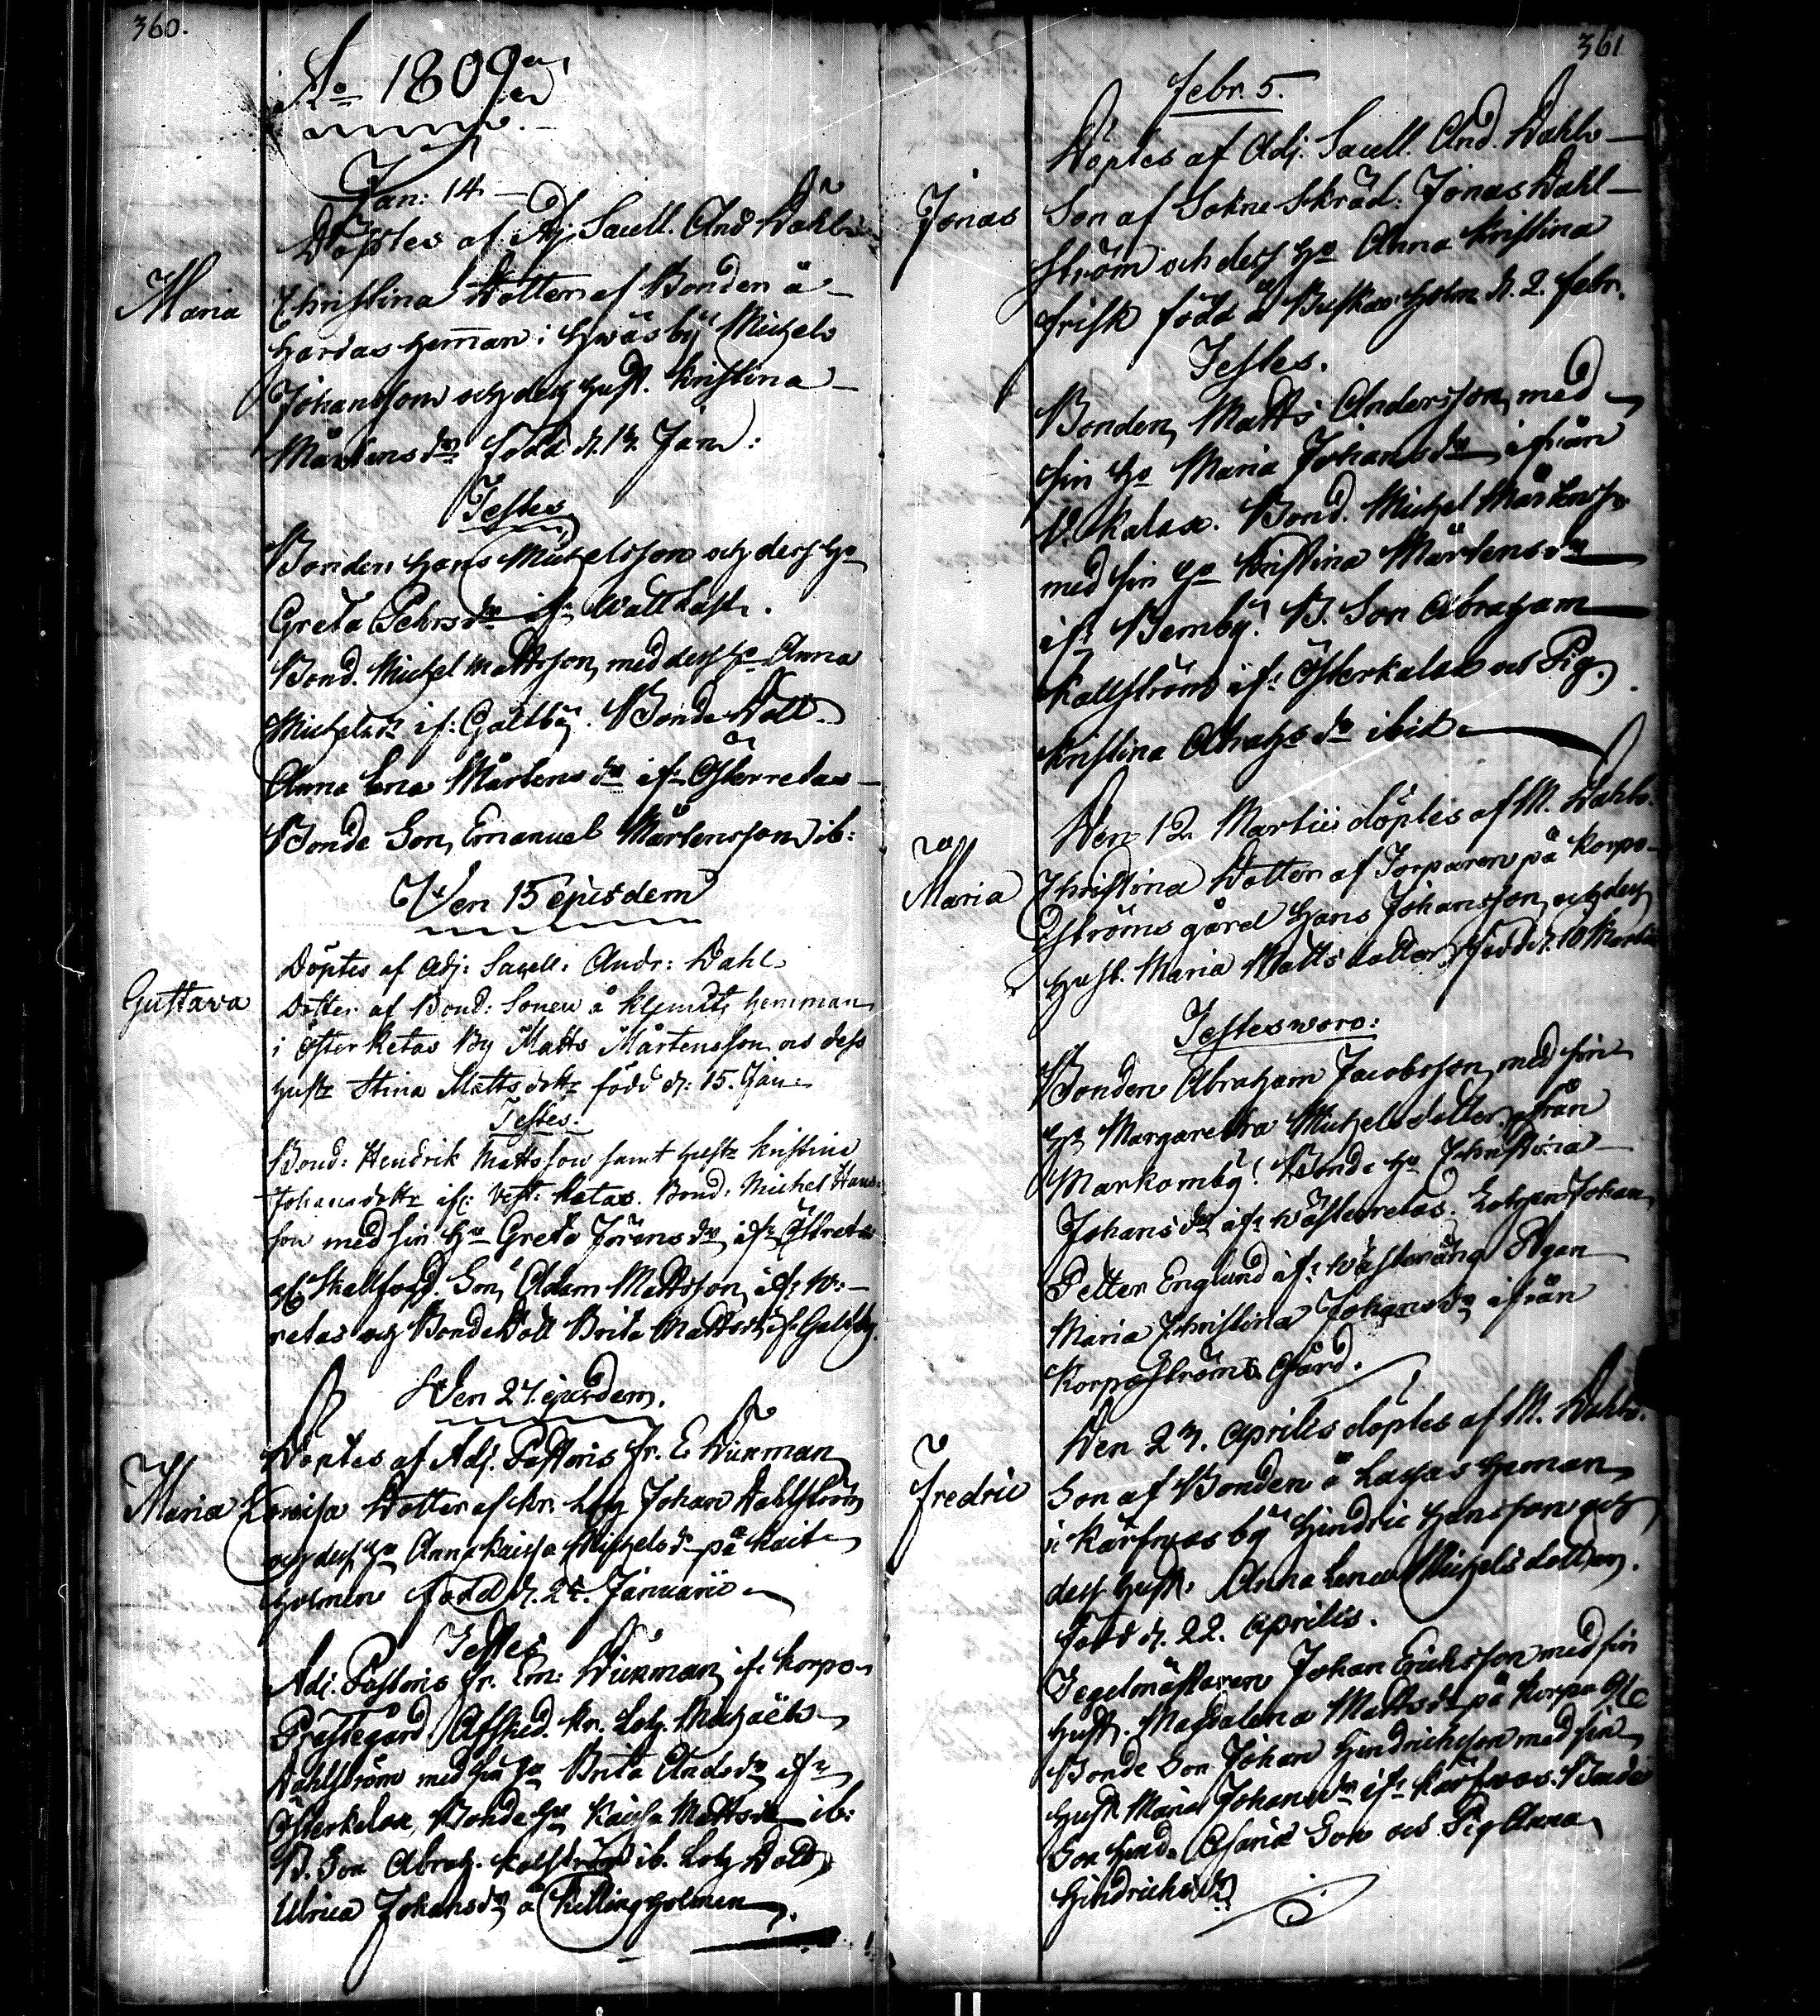 360.
Ao 1809
Jan: 14
Döptes af Adj. Sacell. And. Dahl
Maria Christina Dotter af Bonden å
Hardas heman i Hwäsby Michel
Johansson och dess Hust. Kristina
Mårtens dr född d. 13 Jan:
Testes
Bonden Hans Michelsson och dess Ho
Greta Pehrsdr ifr Wattkast.
Bond. Michel Mattsson, med dess Ho Anna
Michelsdr if: Galtby. Bonde Dott.
Anna Lena Mårtens dr ifr Österretas
Bonde Son Emanuel Mårtensson ib:
Den 15 ejusdem
Döptes af Adj: Sacell: Andr: Dahl
Gustava Dotter af Bond: Sonen å Klemets hemman
i Österretas By Matts Mårtensson och dess
Hustr Stina Mattsdotr född d: 15. Jan
Testes.
Bond: Hendrik Mattsson samt Hustr Kristina
Johansdotr if: Vest: Retas. Bond: Michel Hans-
son med sin Ho Greta Jöransdr ifr Östretas
Son Adam Mattsson, ifr W:
retas och Bonde Dott Brita Mattsdr if Galtby
Den 27. ejusdem.
Döptes af Adj. Pastoris Fr. E. Wikman
Maria Lovisa Dotter af Kr. Lotz Johan Dahlström
och dess Ho Anna Kaisa Michelsdr på Kait
holmen född d. 24. Januarii
Testes
Adj. Pastoris Fr. Em: Wikman, if. Korpo
Prästegård Afsked. Kr. Lotz. Michaël
Dahlström med sin Ho Brita Andsdr ifr
Österkalax, Bonde Ho Kaisa Mattsdr ib:
B. Son Abrah. Kallström ib. Lotz Dott
Ulrica Johansdr å Killingholmen
361
Febr. 5.
Döptes af Adj. Sacell. And. Dahl
Jonas Son af Sokne Skräd. Jonas Dahl-
ström och dess Ho Anna Kristina
Frisk född å Buskasholm d. 2. Febr.
Testes.
Bonden Matts Andersson, med
sin Ho Maria Johansdr ifrån
V. Kalax. Bond. Michel Mårtenss
med sin Ho Kristina Mårtensdr
ifr Bemby. B. Son Abraham
Kallström ifr Österkalax och Pig.
Kristina Abrahsdr ibid
Den 12 Martii döptes af M. Dahl.
Maria Christina Dotter af Torparen på Korpo-
ströms gård Hans Johansson, och dess
Hust. Maria Mattsdotter, född d. 10 Martii
Testes woro:
Bonden Abraham Jacobsson, med sin
Ho Margaretha Michelsdotter, ifrån
Markomby. Bonde Ho Christina
Johansdr ifr Wästerretas. Lotzen Johan
Petter Englund ifr Wästeräng Pigan
Maria Christina Johansdr ifrån
Korpoströms Gård.
Den 23. Aprilis döptes af M. Dahl.
Fredric Son af Bonden å Lassas heman
i Kärfwas by Hindric Hansson och
dess Hust. Anna Lena Michelsdotter.
född d. 22. Aprilis.
Tegelmästaren Johan Ericksson med sin
Hust. Magdalena Mattsdr på Korpo
Bonde Son Johan Hindricksson med sin
Hust Maria Johansdr ifr Kärfwas. Bonde
Son Hind. Son och Pig Anna
Hindrichsdr